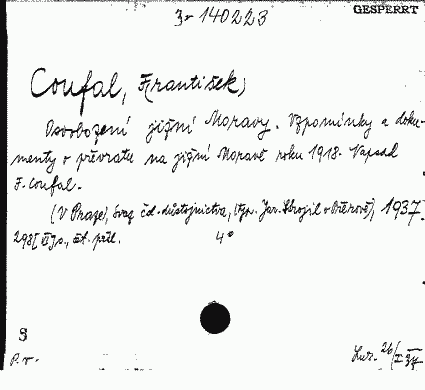 3- 140223
GESPERRT
Coufal, F(rantišek)
Osvobození jižní Moravy. Vzpomínky a doku-
menty o převratu na jižní Moravě roku 1918. Napsal
F. Coufal.
(V Praze), Svaz čsl. důstojnictva, (typ. Jar. Strojil v Přerově), 1937.
298 s., příl. 4°
S
P. r.
26/I 37